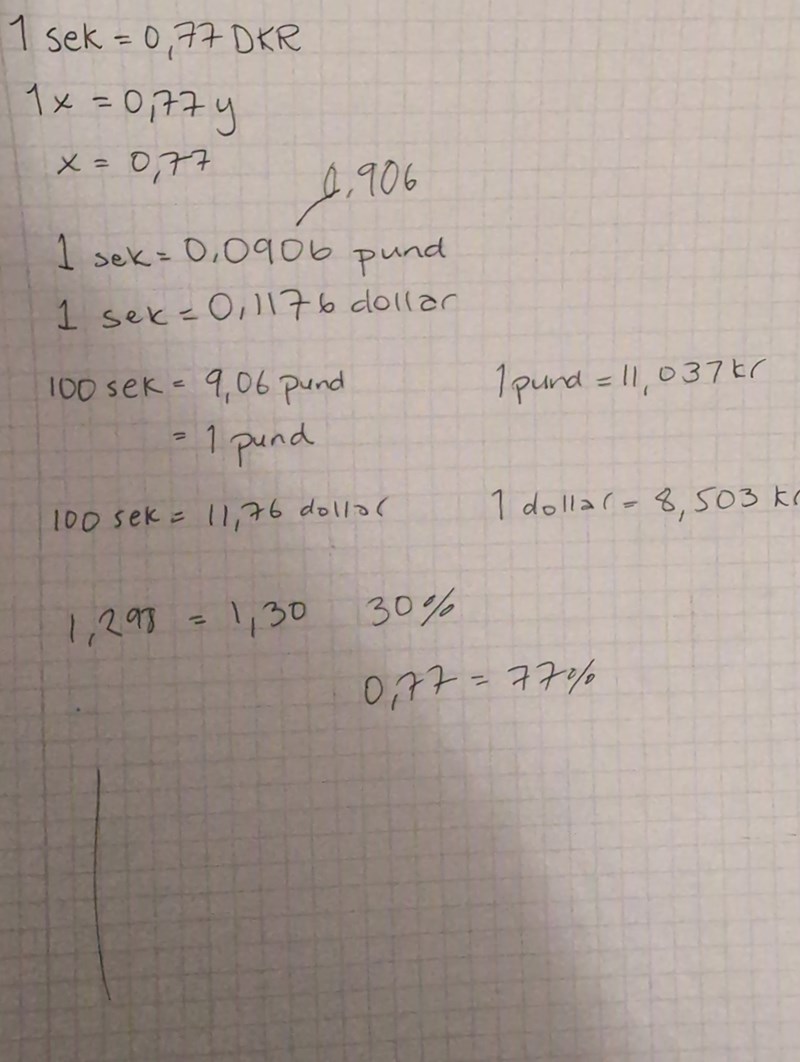 1 sek = 0,77 DKR
1x = 0,77 y
x = 0,77
0,906
1 sek = 0,0906 pund
1 sek = 0,1176 dollar
100 sek = 9,06 pund 1 pund = 11,037 kr
= 1 pund
100 sek = 11,76 dollar 1 dollar = 8,503 kr
1,298 = 1,30 30%
0,77 = 77%